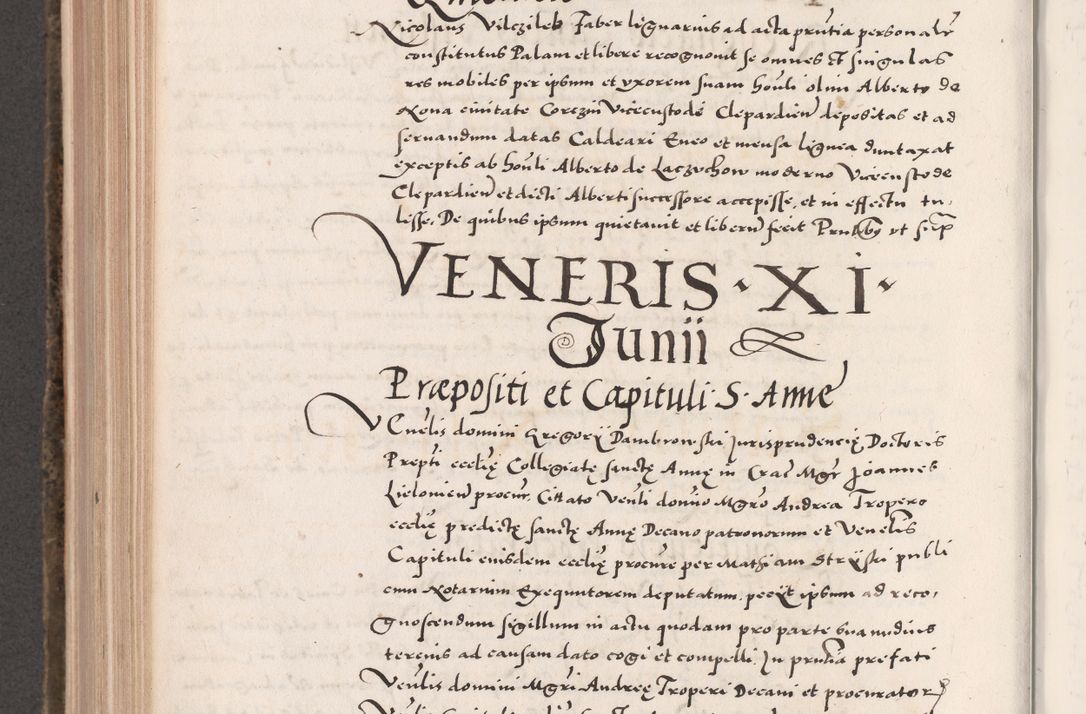 Nicolaus Vilczilek Faber lignarius ad acta prntia personalr
constitutus Palam et libere recognouit se omnes et singulas
res mobiles per ipsum et vxorem suam honli olim Alberto de
Noua ciuitate Corczin Vicecustode Clepardien depositas et ad
seruandum datas Caldeari Eneo et mensa lignea duntaxat
exceptis ab honli Alberto de Laczuchow moderno Vicecustode
Clepardien et dicti Alberti successore accepisse, et in effectu tu,
lisse, De quibus ipsum quietauit et liberu fecit Prntibg vt sup
VENERIS · XI ·
Junii
Præpositi et Capituli S. Anne
Vcnelis domini Gregorÿ Dambrowski jurisprudencię Doctoris
Prepti ecclię Collegiatę sanctę Annę in Crac Mgr Joannes
Lielonien procur, Cittato Venli domno Mgro Andrea Tropero
ecclię predictę sanctę Annę Decano patronorum et Venelis
Capituli eiusdem ecclię procure per Mathiam Strÿski publi
cum Notarium Exequutorem deputatum, peciit ipsum ad reco,
gnoscendum sigillum in actu quodam pro parte sua nudius
tercius ad causam dato cogi et compelli, In prntia prefati
Venlis domini Mgri Andreę Troperi Decani et procurator